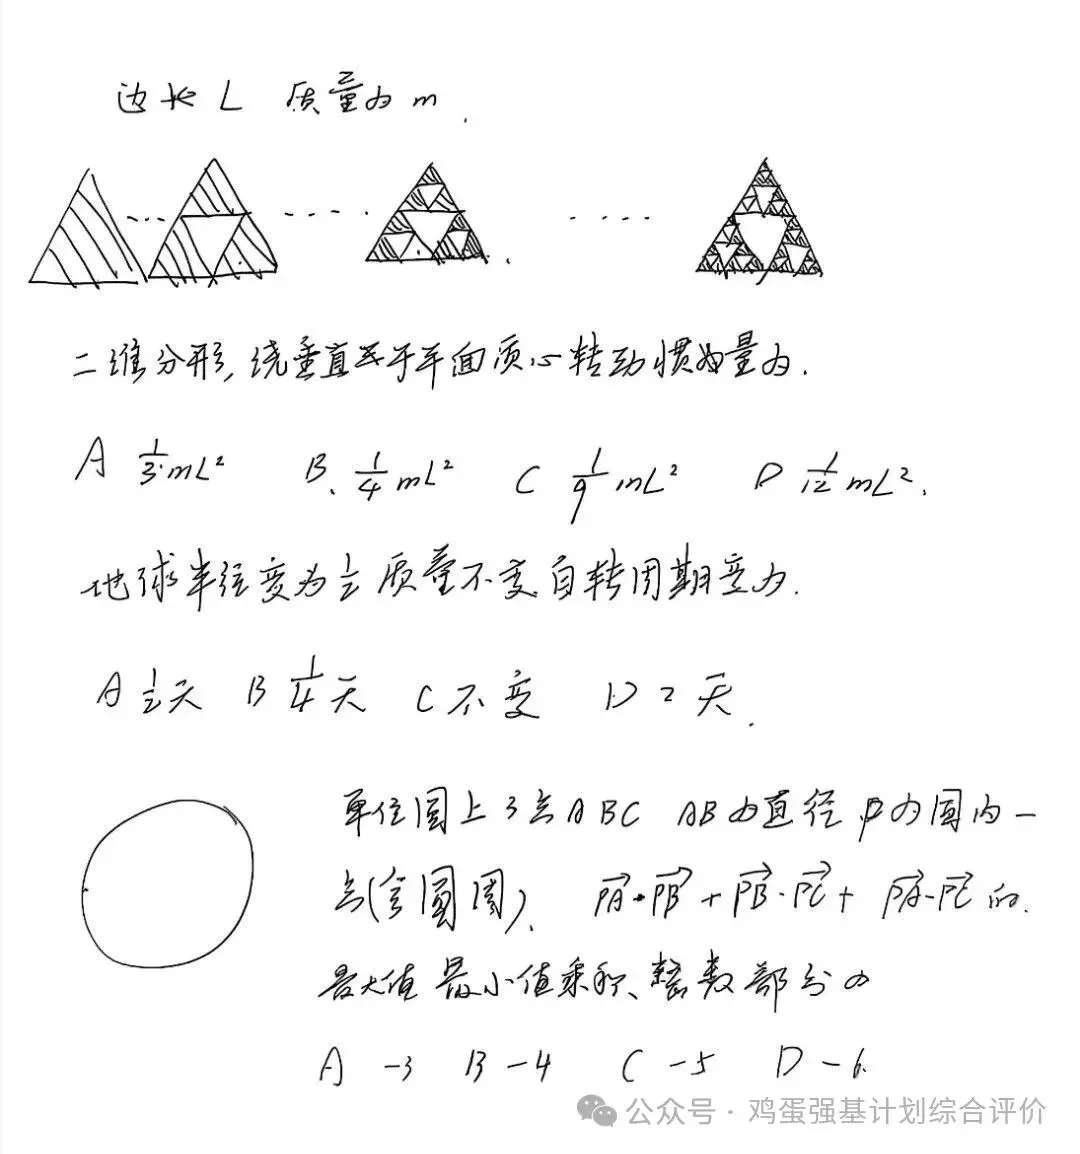 边长 L 质量为 m.
二维分形,绕垂直于平面质心转动惯量为.
A 1/3 mL² B. 1/4 mL² C 1/9 mL² D 1/12 mL².
地球半径变为 1/2 质量不变自转周期变为.
A 1/2 天 B 1/4 天 C 不变 D 2 天.
单位圆上3点ABC AB为直径 P为圆内一
点(含圆周). PA·PB + PB·PC + PA·PC 的.
最大值 最小值乘积、整数部分为
A -3 B -4 C -5 D -6.
公众号·鸡蛋强基计划综合评价